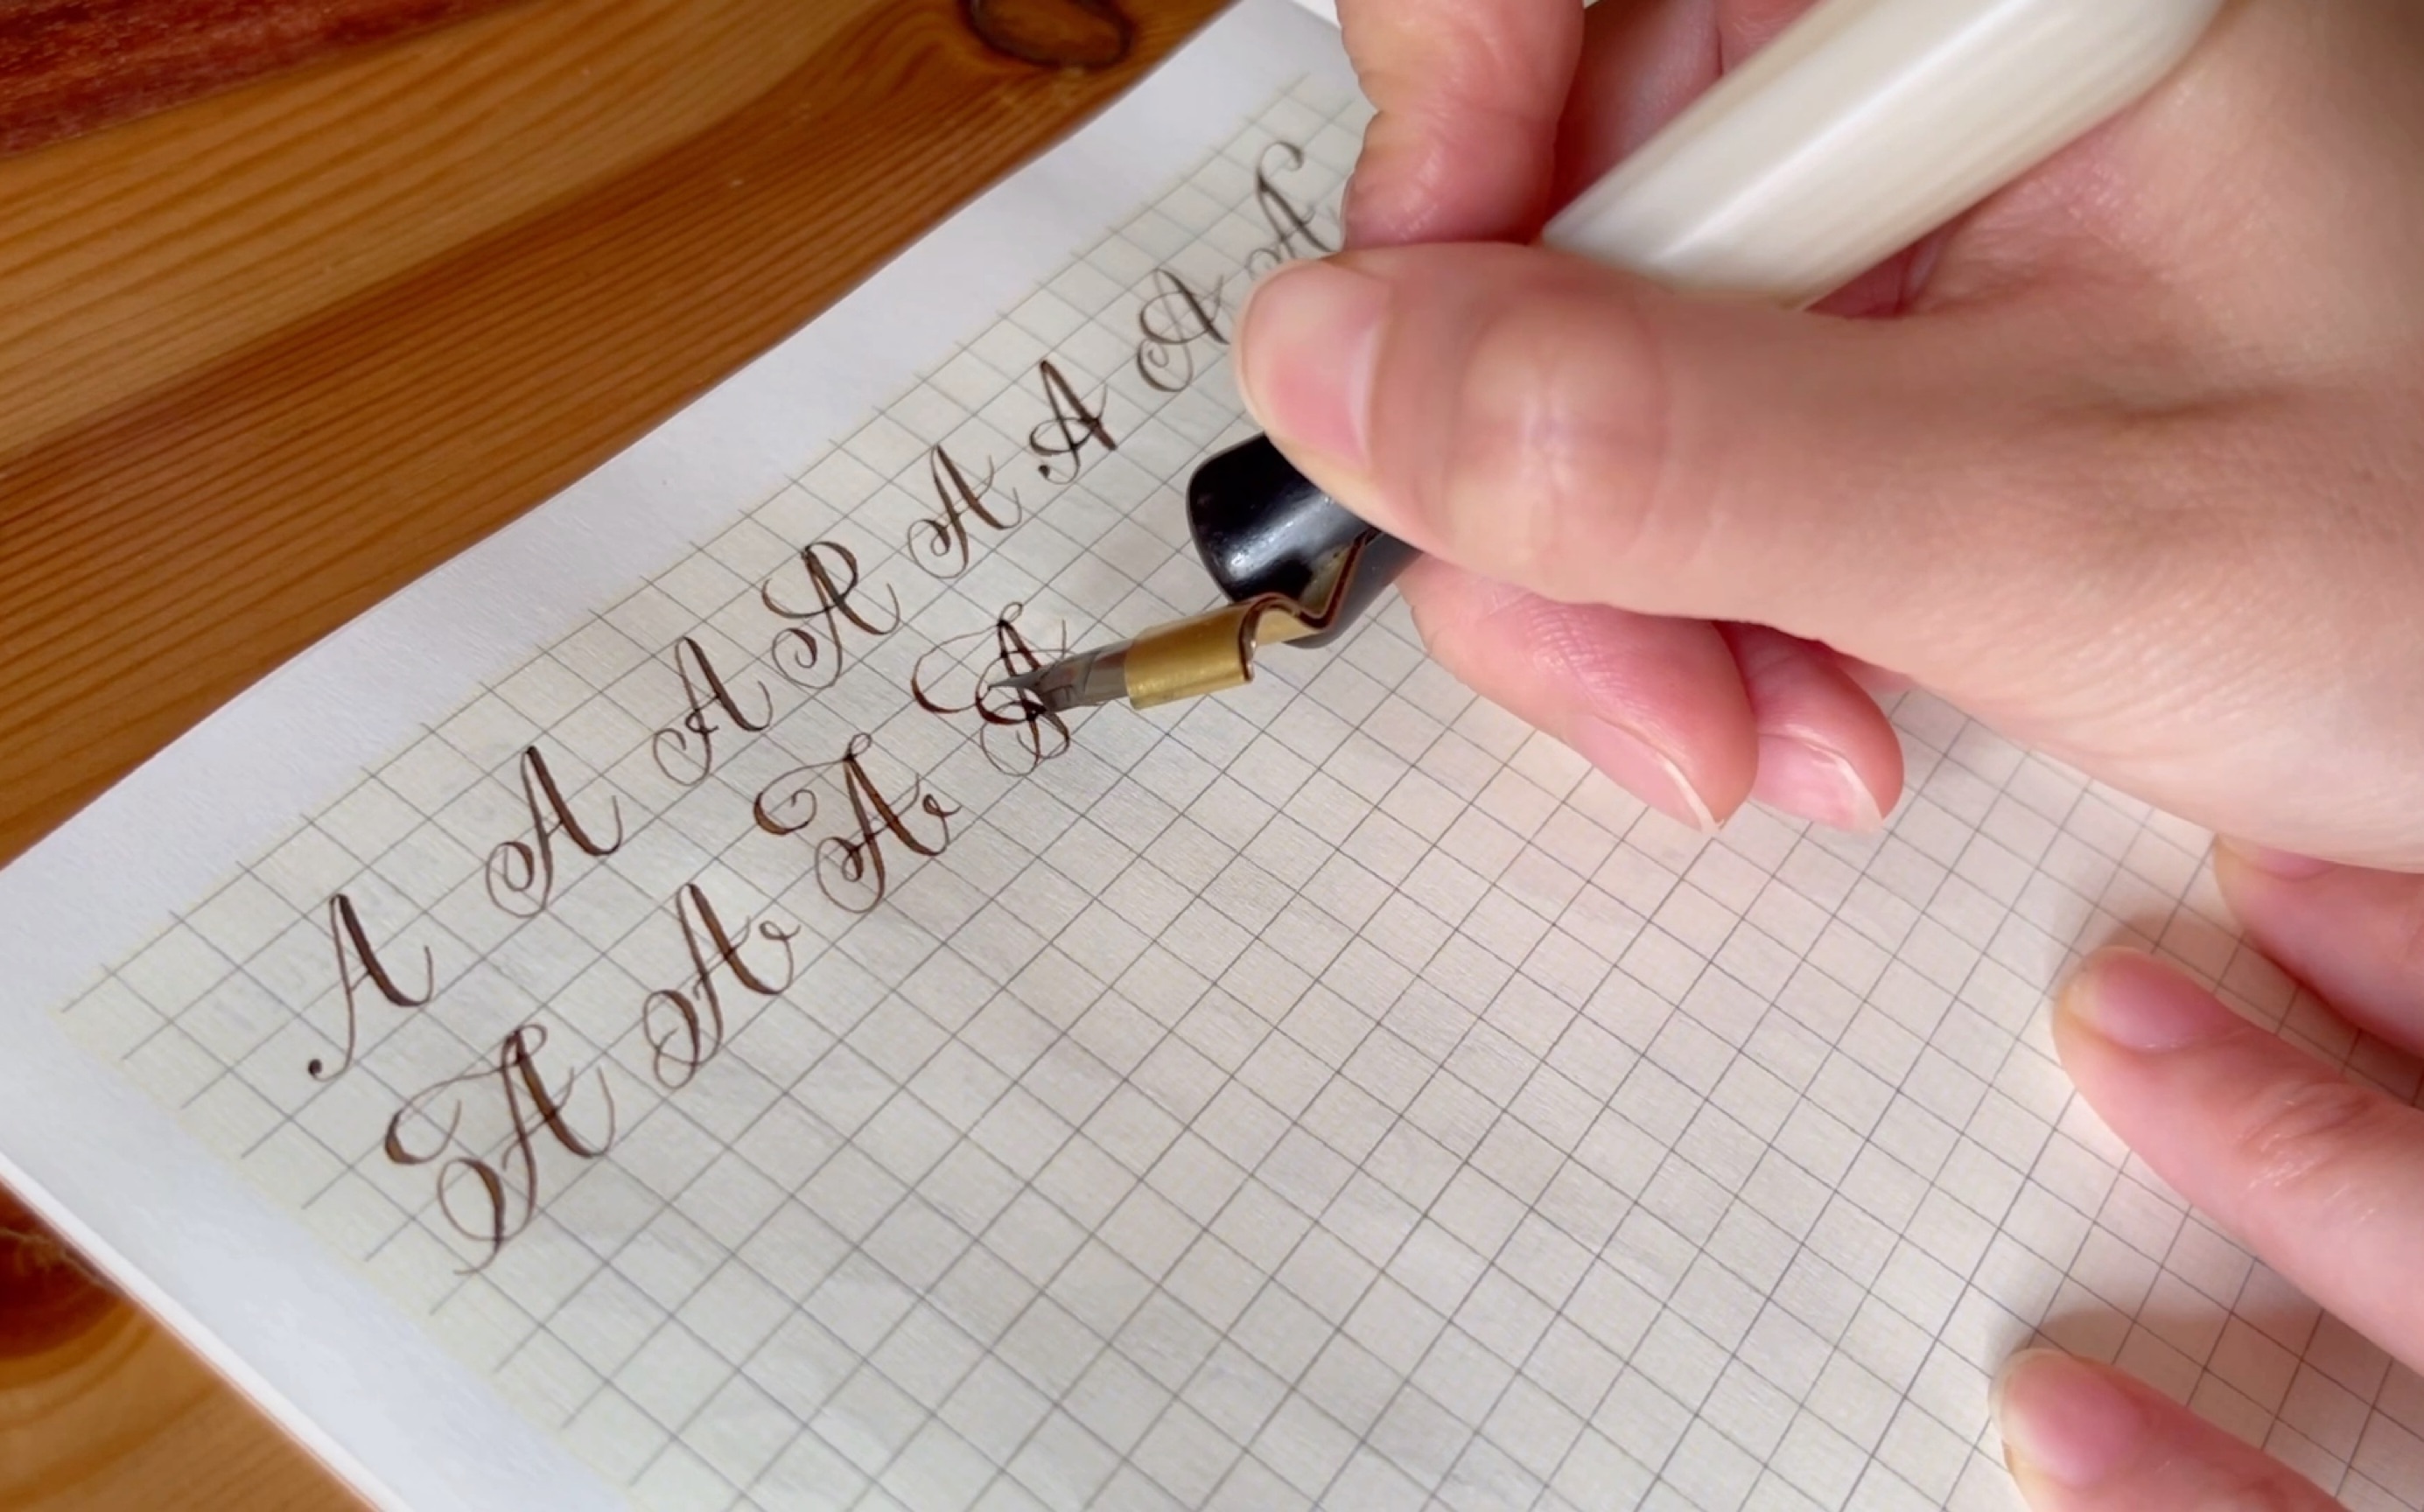 A A A A A A A A
A A A A